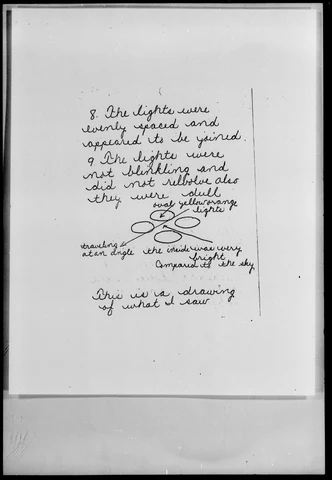 8. The lights were
evenly spaced and
appeared to be joined.
9 The lights were
not blinkling and
did not relbolve also
they were dull
oval yelloworange
lights
traveling
at an angle
the inside was very
bright
Compared to the sky
This is a drawing
of what I saw